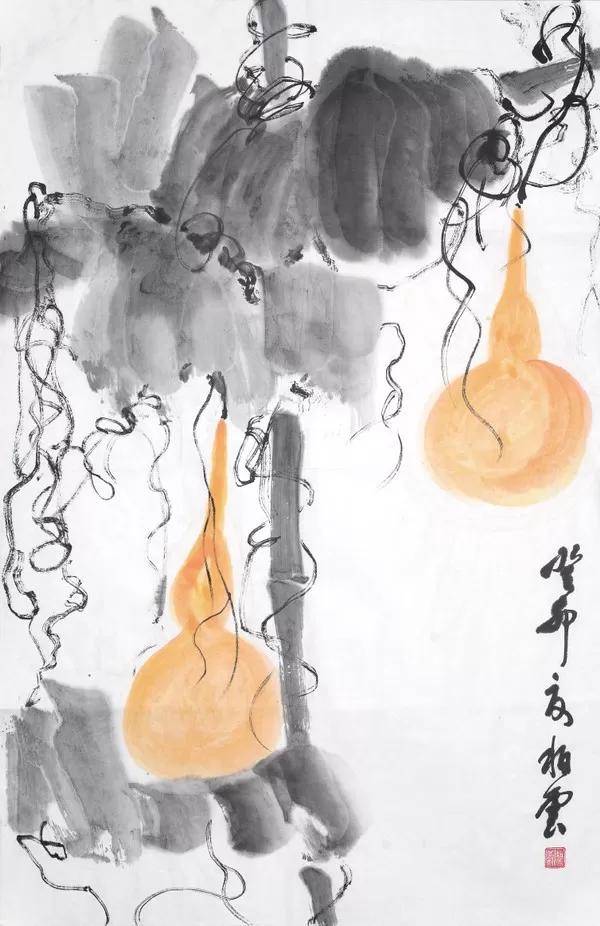 癸卯夏柏雲